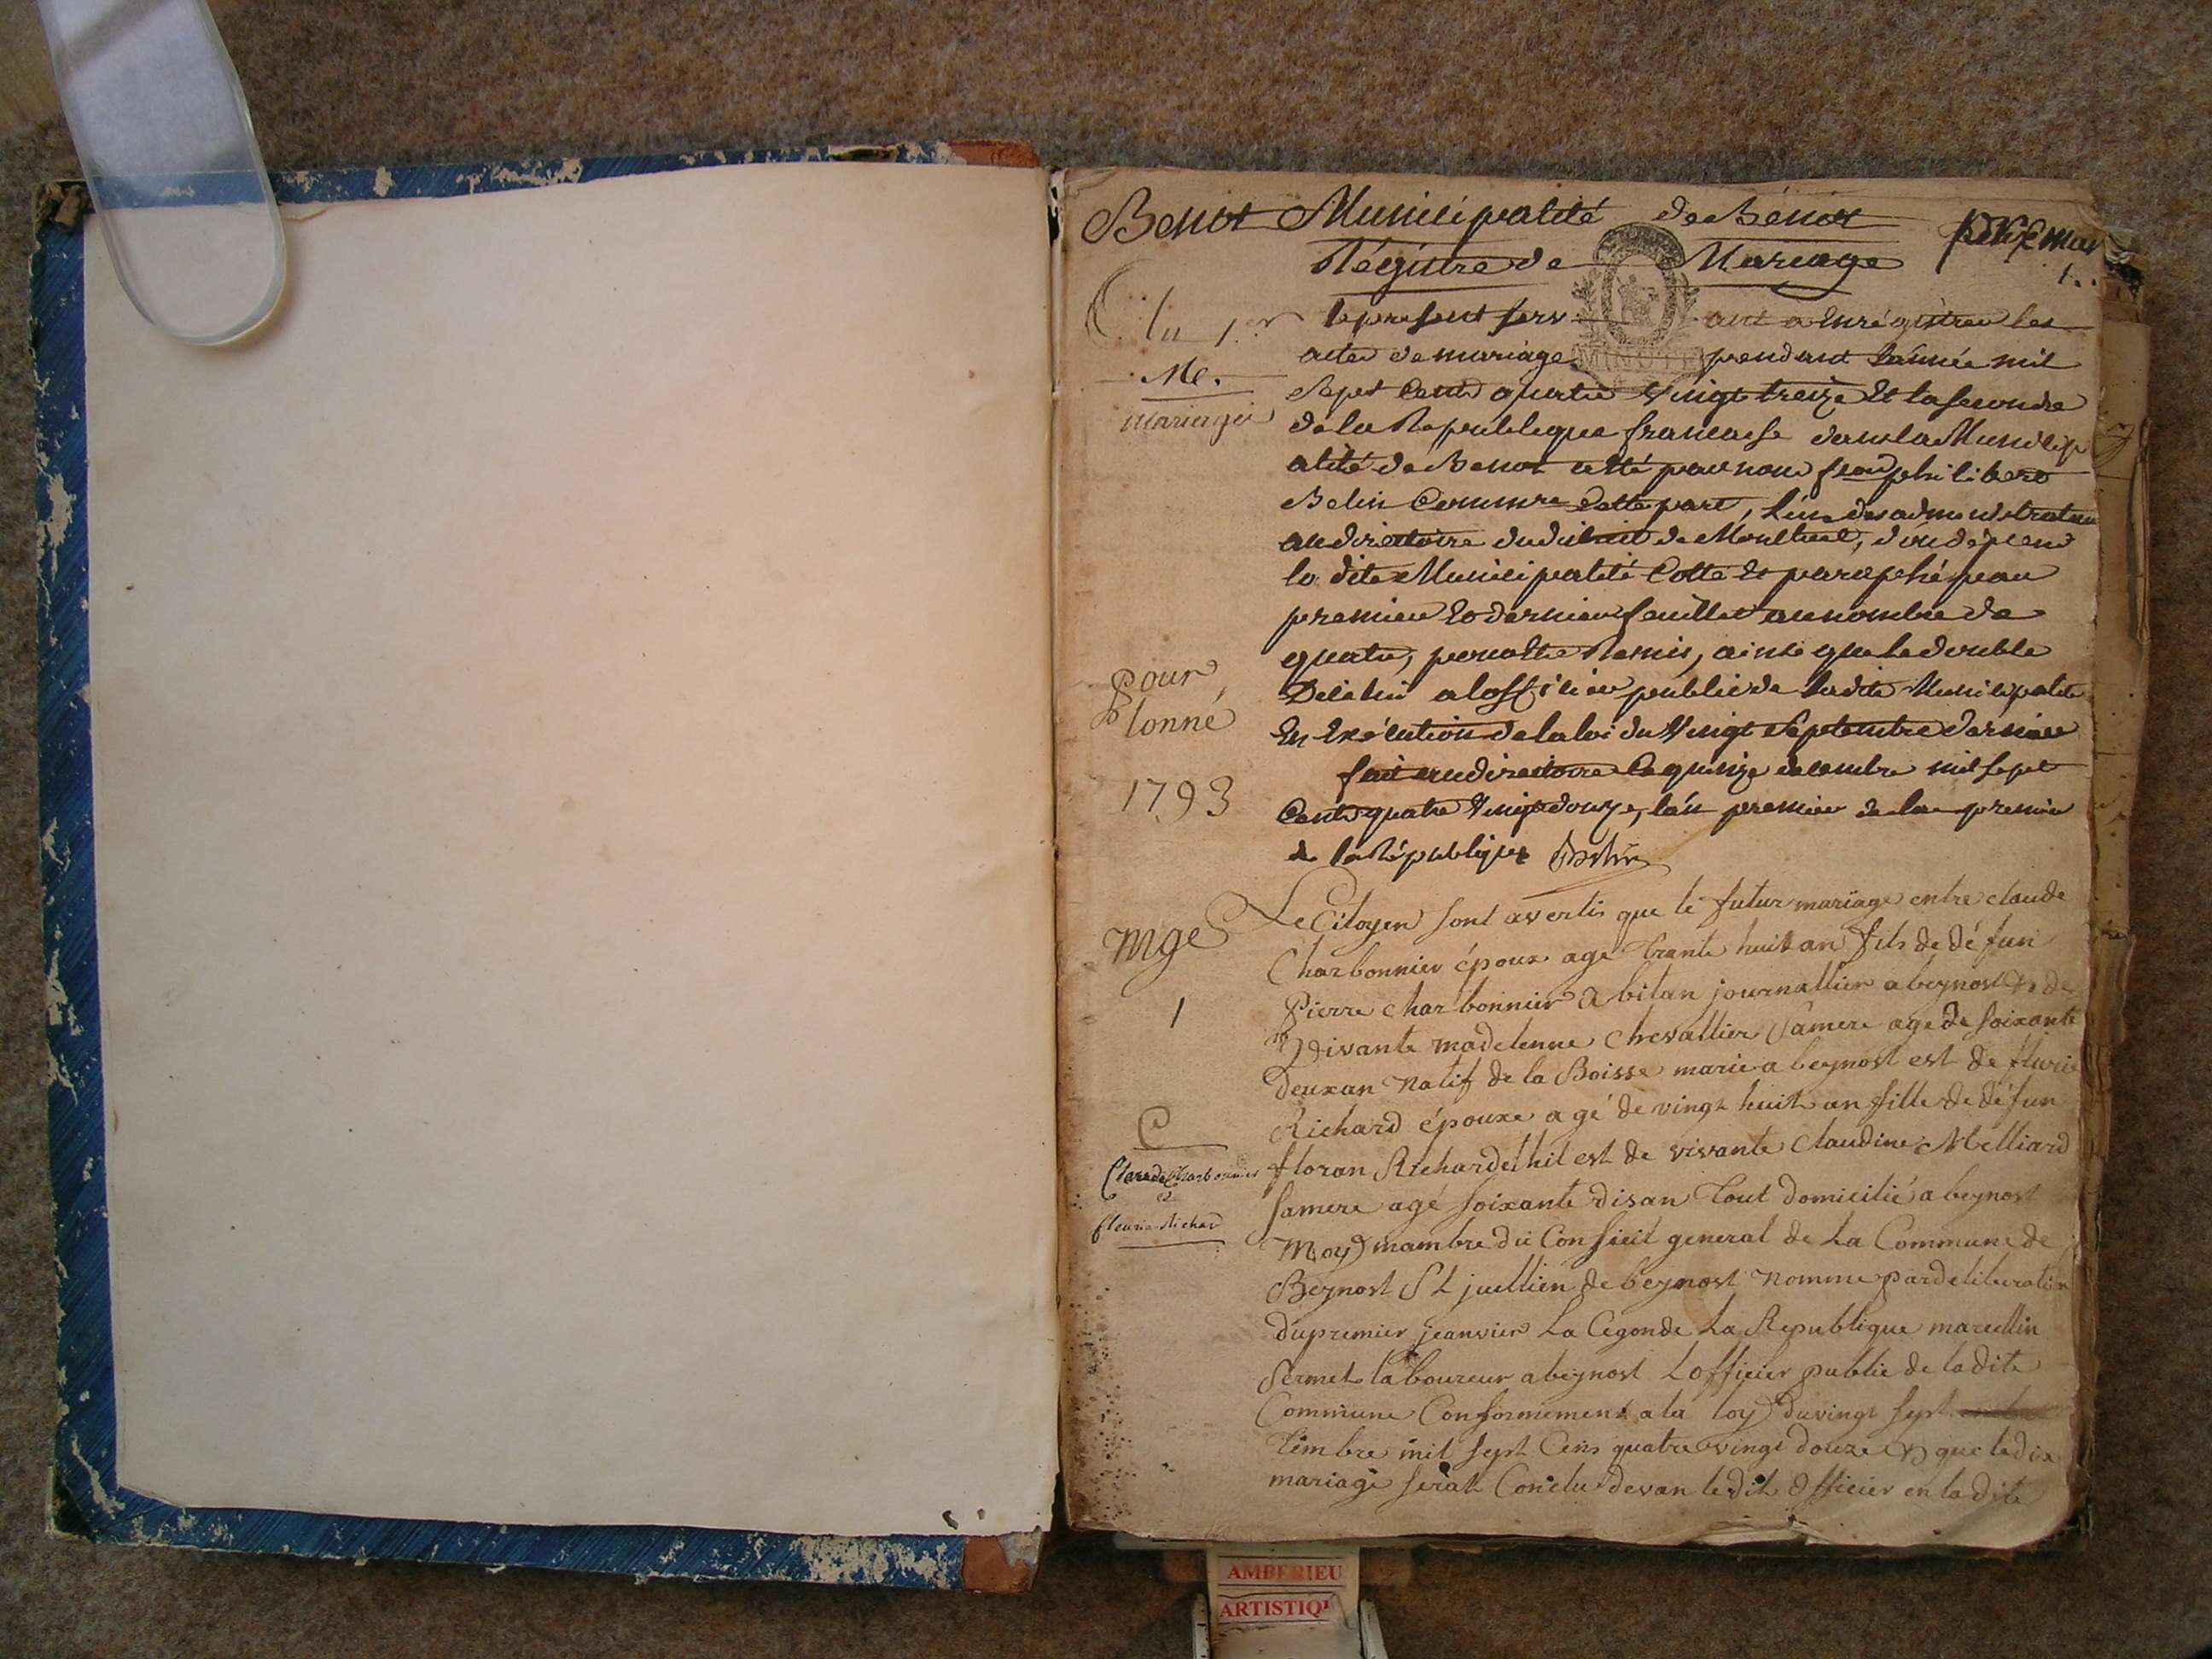 Benot Municipalité de Bénot
Régistre de Mariage
1..
1.er
le present serv ant a Enrégistrer les
MINUTE
actes de mariage pendant L'année mil
Me.
Sept Cents quatre Vingt treize Et la seconde
Mariages
de la Republique francaise dans la Municip
alité de Benot par nous philibert
Belin Comm.re Cette part, L'un des administrateurs
au directoire du district de Montluel, d'ou dépend
la dite Municipalité Cotté Et paraphé par
premier Et dernier feuillet au nombre de
quatre, pour Etre Remis, ainsi que le double
Pour
Dicelui a lofficier public de ladite Municipalité
lonné
En Exécution de la loi du Vingt Septembre dernier
fait au directoire Ce quinze decembre mil sept
1793
Cents quatre Vingt douze, l'an premier de la premier
de la République Belin
mge
Le Citoyen sont avertis que le futur mariage entre claude
Charbonnier époux age trante huit an fils de défun
1
Pierre charbonnier abitan journallier a beynost & de
vivante madelenne chevallier samere age de soixante
deux an Natif de la Boisse marie a beynost est de flurie
Richard épouxe agé de vingt huit an fille de défun
C
floran Richard est de vivante Claudine Melliard
Claude Charbonnier
&
samere agé soixante disan tout domicilié a beynost
fleurie Richard
Moy mambre du Consieil general de La Commune de
Beynost St juillien de beynost Nomme par deliberation
du premier jeanvier La Cegonde La Republique marcellin
Sermet laboureur a beynost Lofficier public de la dite
Commune Conformement a la loy du vingt sept
timbre mil sept Cens quatre vingt douze & que ledix
mariage serat Conclu devan le dit officier en la dite
AMBERIEU
ARTISTIQU